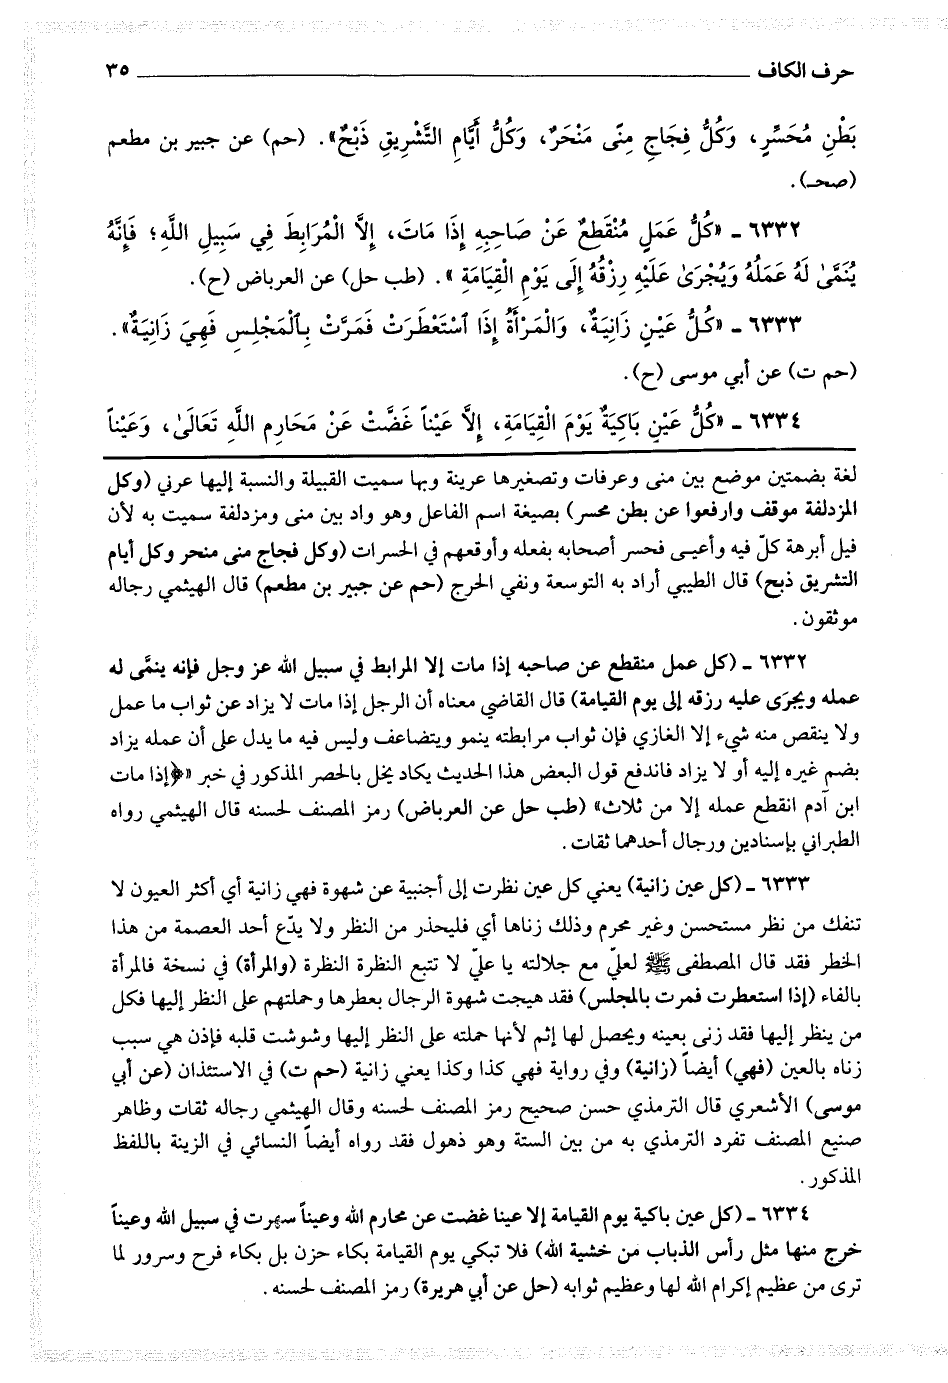 حرف الكاف ٣٥
بَطْنِ مُحَسِّرٍ، وَكُلُّ فِجَاجِ مِنًى مَنْحَرٌ، وَكُلُّ أَيَّامِ التَّشْرِيقِ ذَبْحٌ». (حم) عن جبير بن مطعم
(صحـ).
٦٣٣٢ ـ «كُلُّ عَمَلٍ مُنْقَطِعٌ عَنْ صَاحِبِهِ إِذَا مَاتَ، إِلاَّ الْمُرَابِطَ فِي سَبِيلِ اللَّهِ؛ فَإِنَّهُ
يُنَمَّىٰ لَهُ عَمَلُهُ وَيُجْرَىٰ عَلَيْهِ رِزْقُهُ إِلَى يَوْمِ الْقِيَامَةِ». (طب حل) عن العرباض (ح).
٦٣٣٣ ـ «كُلُّ عَيْنٍ زَانِيَةٌ، وَالْمَرْأَةُ إِذَا ٱسْتَعْطَرَتْ فَمَرَّتْ بِٱلْمَجْلِسِ فَهِيَ زَانِيَةٌ».
(حم ت) عن أبي موسى (ح).
٦٣٣٤ ـ «كُلُّ عَيْنٍ بَاكِيَةٌ يَوْمَ الْقِيَامَةِ، إِلاَّ عَيْناً غَضَّتْ عَنْ مَحَارِمِ اللَّهِ تَعَالَىٰ، وَعَيْناً
لغة بضمتين موضع بين منى وعرفات وتصغيرها عرينة وبها سميت القبيلة والنسبة إليها عرني (وكل
المزدلفة موقف وارفعوا عن بطن محسر) بصيغة اسم الفاعل وهو واد بين منى ومزدلفة سميت به لأن
فيل أبرهة كلّ فيه وأعيـى فحسر أصحابه بفعله وأوقعهم في الحسرات (وكل فجاج منى منحر وكل أيام
التشريق ذبح) قال الطيبي أراد به التوسعة ونفي الحرج (حم عن جبير بن مطعم) قال الهيثمي رجاله
موثقون.
٦٣٣٢ ـ (كل عمل منقطع عن صاحبه إذا مات إلا المرابط في سبيل الله عز وجل فإنه ينمَّى له
عمله ويجرَى عليه رزقه إلى يوم القيامة) قال القاضي معناه أن الرجل إذا مات لا يزاد عن ثواب ما عمل
ولا ينقص منه شيء إلا الغازي فإن ثواب مرابطته ينمو ويتضاعف وليس فيه ما يدل على أن عمله يزاد
بضم غيره إليه أو لا يزاد فاندفع قول البعض هذا الحديث يكاد يخل بالحصر المذكور في خبر «﴿إذا مات
ابن آدم انقطع عمله إلا من ثلاث» (طب حل عن العرباض) رمز المصنف لحسنه قال الهيثمي رواه
الطبراني بإسنادين ورجال أحدهما ثقات.
٦٣٣٣ ـ (كل عين زانية) يعني كل عين نظرت إلى أجنبية عن شهوة فهي زانية أي أكثر العيون لا
تنفك من نظر مستحسن وغير محرم وذلك زناها أي فليحذر من النظر ولا يدّع أحد العصمة من هذا
الخطر فقد قال المصطفى ﷺ لعليّ مع جلالته يا عليّ لا تتبع النظرة النظرة (والمرأة) في نسخة فالمرأة
بالفاء (إذا استعطرت فمرت بالمجلس) فقد هيجت شهوة الرجال بعطرها وحملتهم على النظر إليها فكل
من ينظر إليها فقد زنى بعينه ويحصل لها إثم لأنها حملته على النظر إليها وشوشت قلبه فإذن هي سبب
زناه بالعين (فهي) أيضاً (زانية) وفي رواية فهي كذا وكذا يعني زانية (حم ت) في الاستئذان (عن أبي
موسى) الأشعري قال الترمذي حسن صحيح رمز المصنف لحسنه وقال الهيثمي رجاله ثقات وظاهر
صنيع المصنف تفرد الترمذي به من بين الستة وهو ذهول فقد رواه أيضاً النسائي في الزينة باللفظ
المذكور.
٦٣٣٤ ـ (كل عين باكية يوم القيامة إلا عينا غضت عن محارم الله وعيناً سهرت في سبيل الله وعيناً
خرج منها مثل رأس الذباب من خشية الله) فلا تبكي يوم القيامة بكاء حزن بل بكاء فرح وسرور لما
ترى من عظيم إكرام الله لها وعظيم ثوابه (حل عن أبي هريرة) رمز المصنف لحسنه.